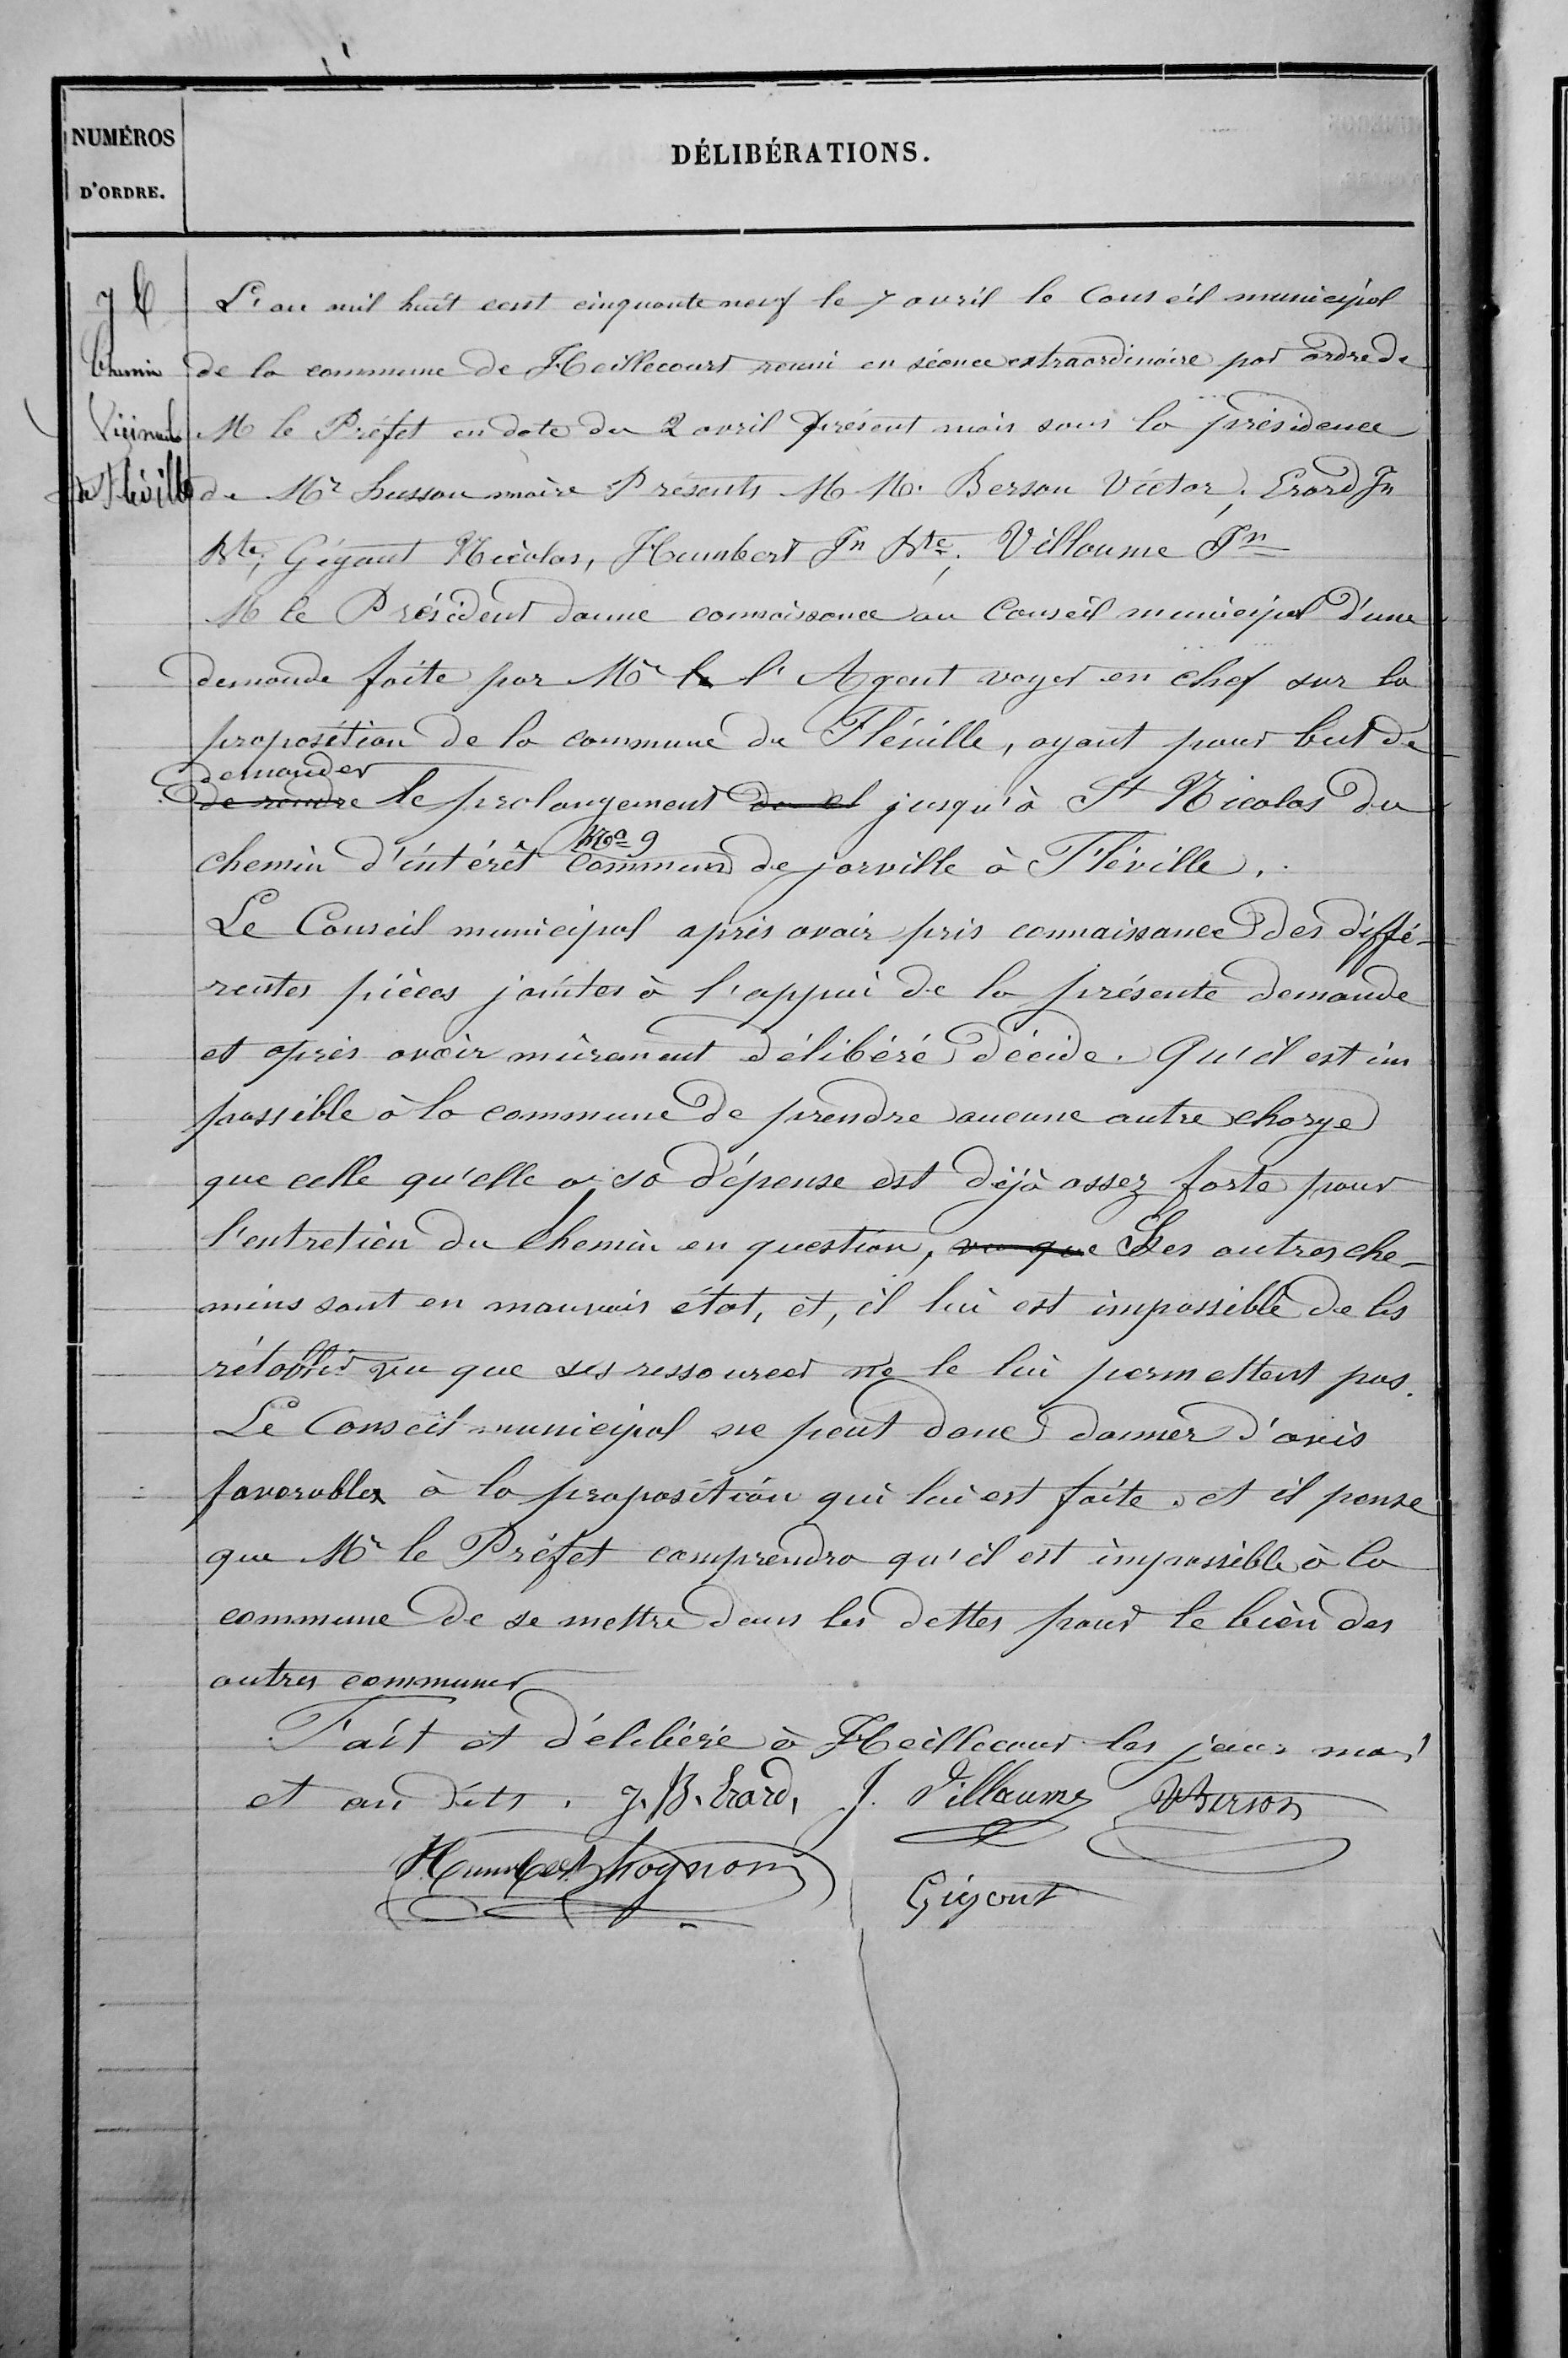 NUMÉROS
D'ORDRE.
DÉLIBÉRATIONS.
Chemin
Vicinal
de Fléville
L'an mil huit cent cinquante neuf le 7 avril le Conseil municipal
de la commune de Heillecourt reuni en séance extraordinaire par ordre de
M le Préfet en date du 2 avril présent mois sous la présidence
de Mr Husson maire Présents M M. Berson Victor, Erard Jn
Bte, Gigant Nicolas, Humbert Jn Bte, Villaume Jn
M le Président donne connaissance au Conseil municipal d'une
demande faite par Mr le l'Agent voyer en chef sur la
proposition de la commune de Fléville, ayant pour but de
demander
de rendre le prolongement jusqu'à St Nicolas du
No 9
chemin d'intérêt commun de jarville à Fléville.
Le Conseil municipal après avoir pris connaissance des diffé-
rentes pièces jointes à l'appui de la présente demande
et après avoir mûrement délibéré décide. Qu'il est im
possible à la commune de prendre aucune autre charge
que celle qu'elle a, sa dépense est déjà assez forte pour
l'entretien du Chemin en question, vu que Ses autres che-
mins sont en mauvais état, et, il lui est impossible de les
rétablir vu que ses ressources ne le lui permettent pas.
Le Conseil municipal ne peut donc donner d'avis
favorables à la proposition qui lui est faite, et il pense
que Mr le Préfet comprendra qu'il est impossible à la
commune de se mettre dans les dettes pour le bien des
autres communes
Fait et délibéré à Heillecour les jour mois
et an dits. J. B. Erard, J. Villaume V Berson
Humbert hognon
Gigout